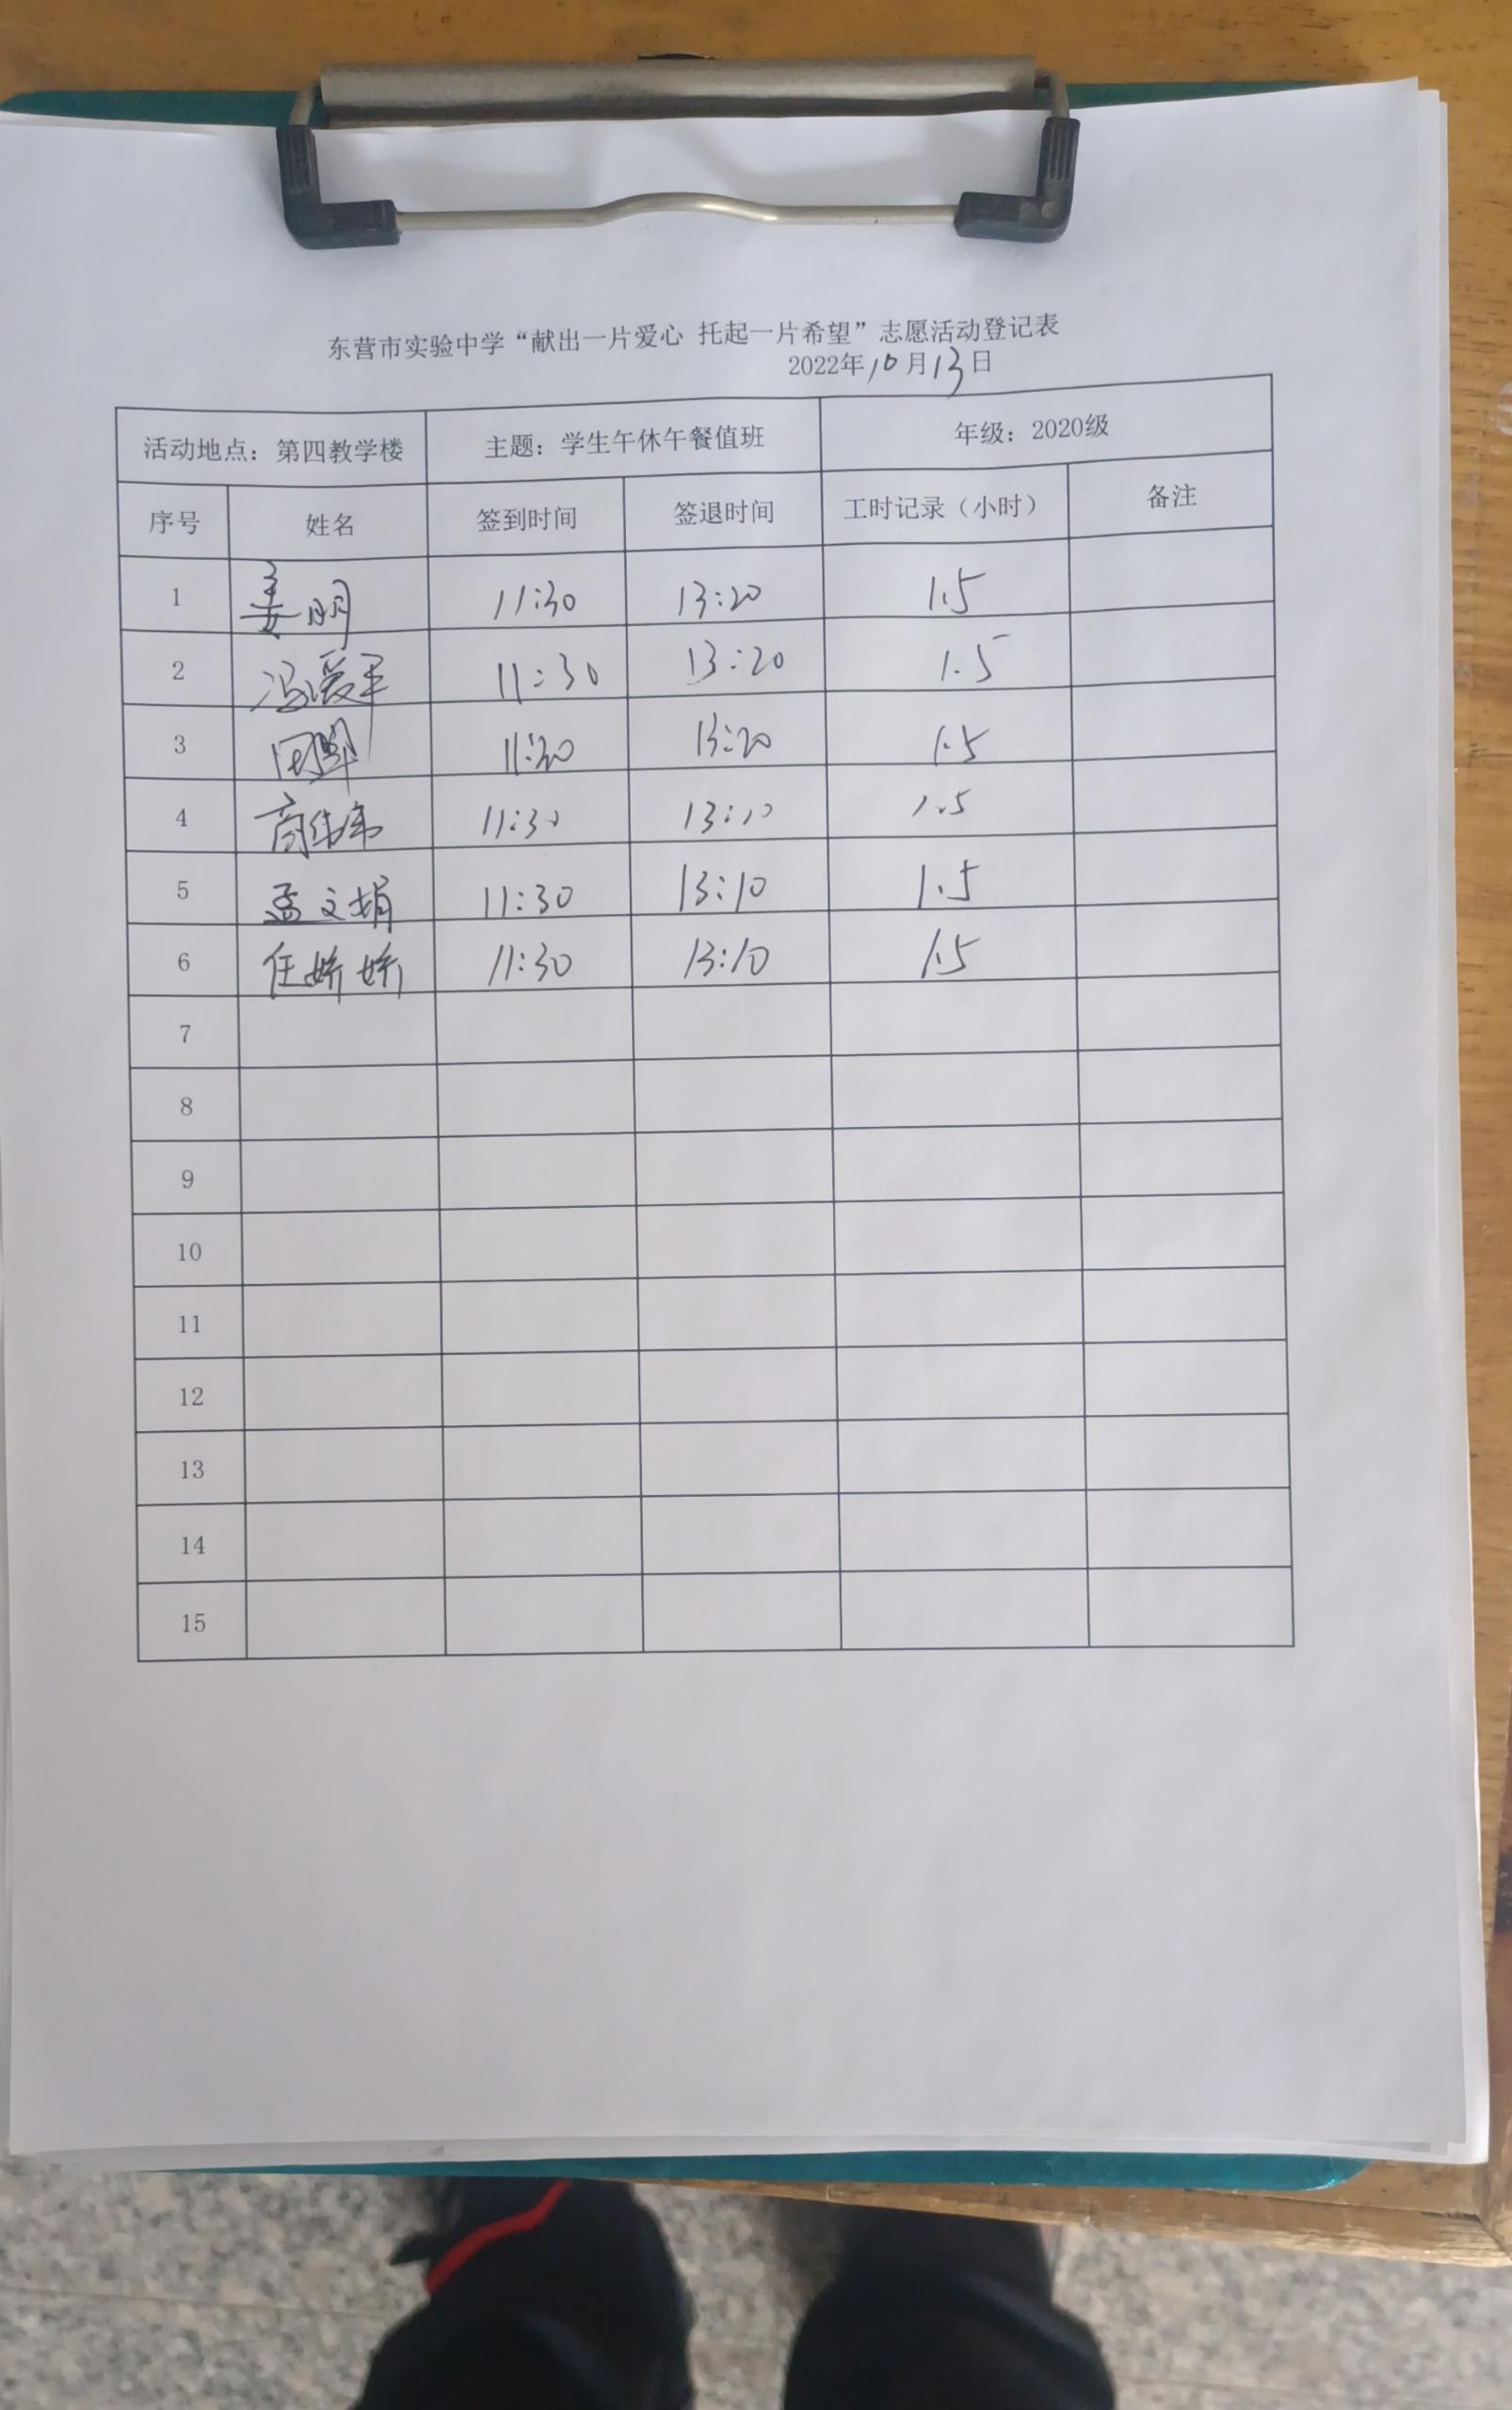 东营市实验中学“献出一片爱心 托起一片希望”志愿活动登记表
2022年10月13日
活动地点：第四教学楼 主题：学生午休午餐值班 年级：2020级
序号 姓名 签到时间 签退时间 工时记录（小时） 备注
1 姜明 11:30 13:20 1.5
2 冯爱军 11:30 13:20 1.5
3 11:30 13:20 1.5
4 高 11:30 13:10 1.5
5 孟文娟 11:30 13:10 1.5
6 任娇娇 11:30 13:10 1.5
7
8
9
10
11
12
13
14
15